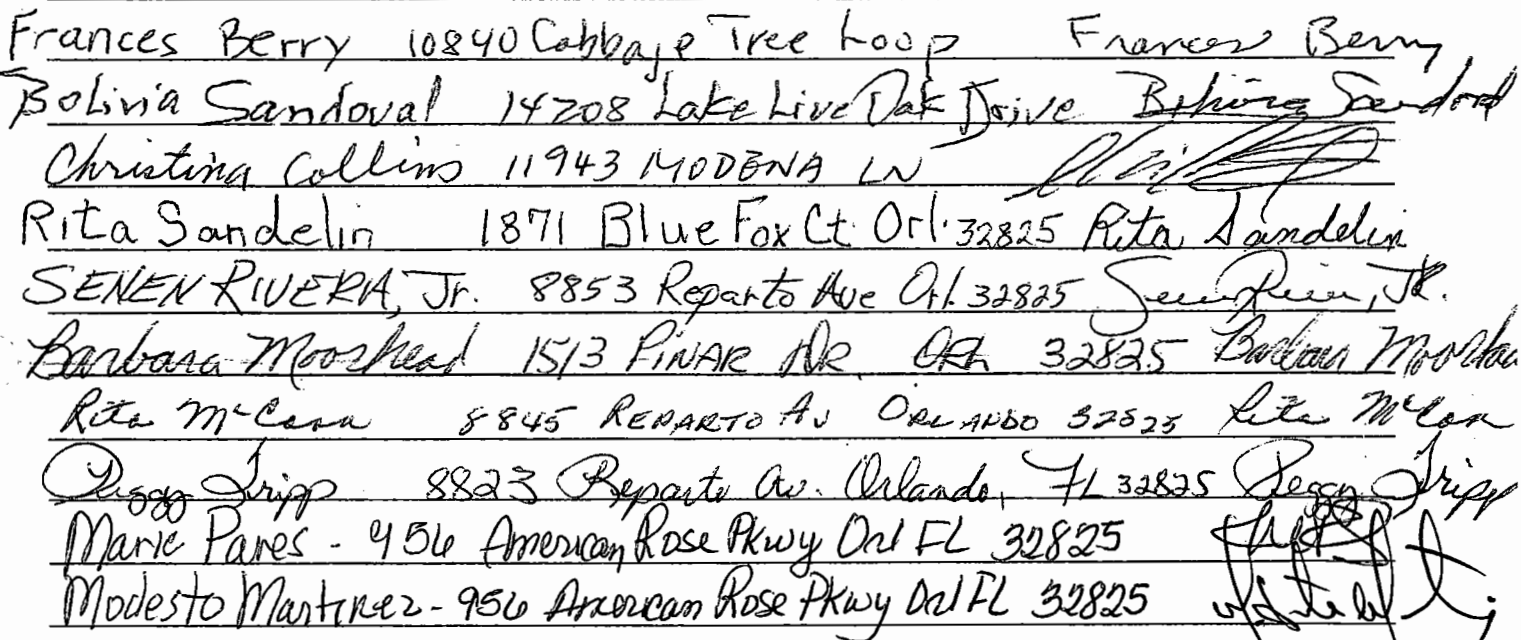 Frances Berry 10840 Cabbage Tree Loop Frances Berry
Bolivia Sandoval 14208 Lake Live Oak Drive Bolivia Sandoval
Christina Collins 11943 MODENA LN
Rita Sandelin 1871 Blue Fox Ct. Orl. 32825 Rita Sandelin
SENEN RIVERA, Jr. 8853 Reparto Ave Orl. 32825 Senen Rivera, JR.
Barbara Moorhead 1513 PINAR DR. ORL 32825 Barbara Moorhead
Rita McCann 8845 REPARTO AV ORLANDO 32825 Rita McCann
Peggy Tripp 8823 Reparto Av. Orlando, FL 32825 Peggy Tripp
Marie Pares - 956 American Rose Pkwy Orl FL 32825
Modesto Martinez - 956 American Rose Pkwy Orl FL 32825